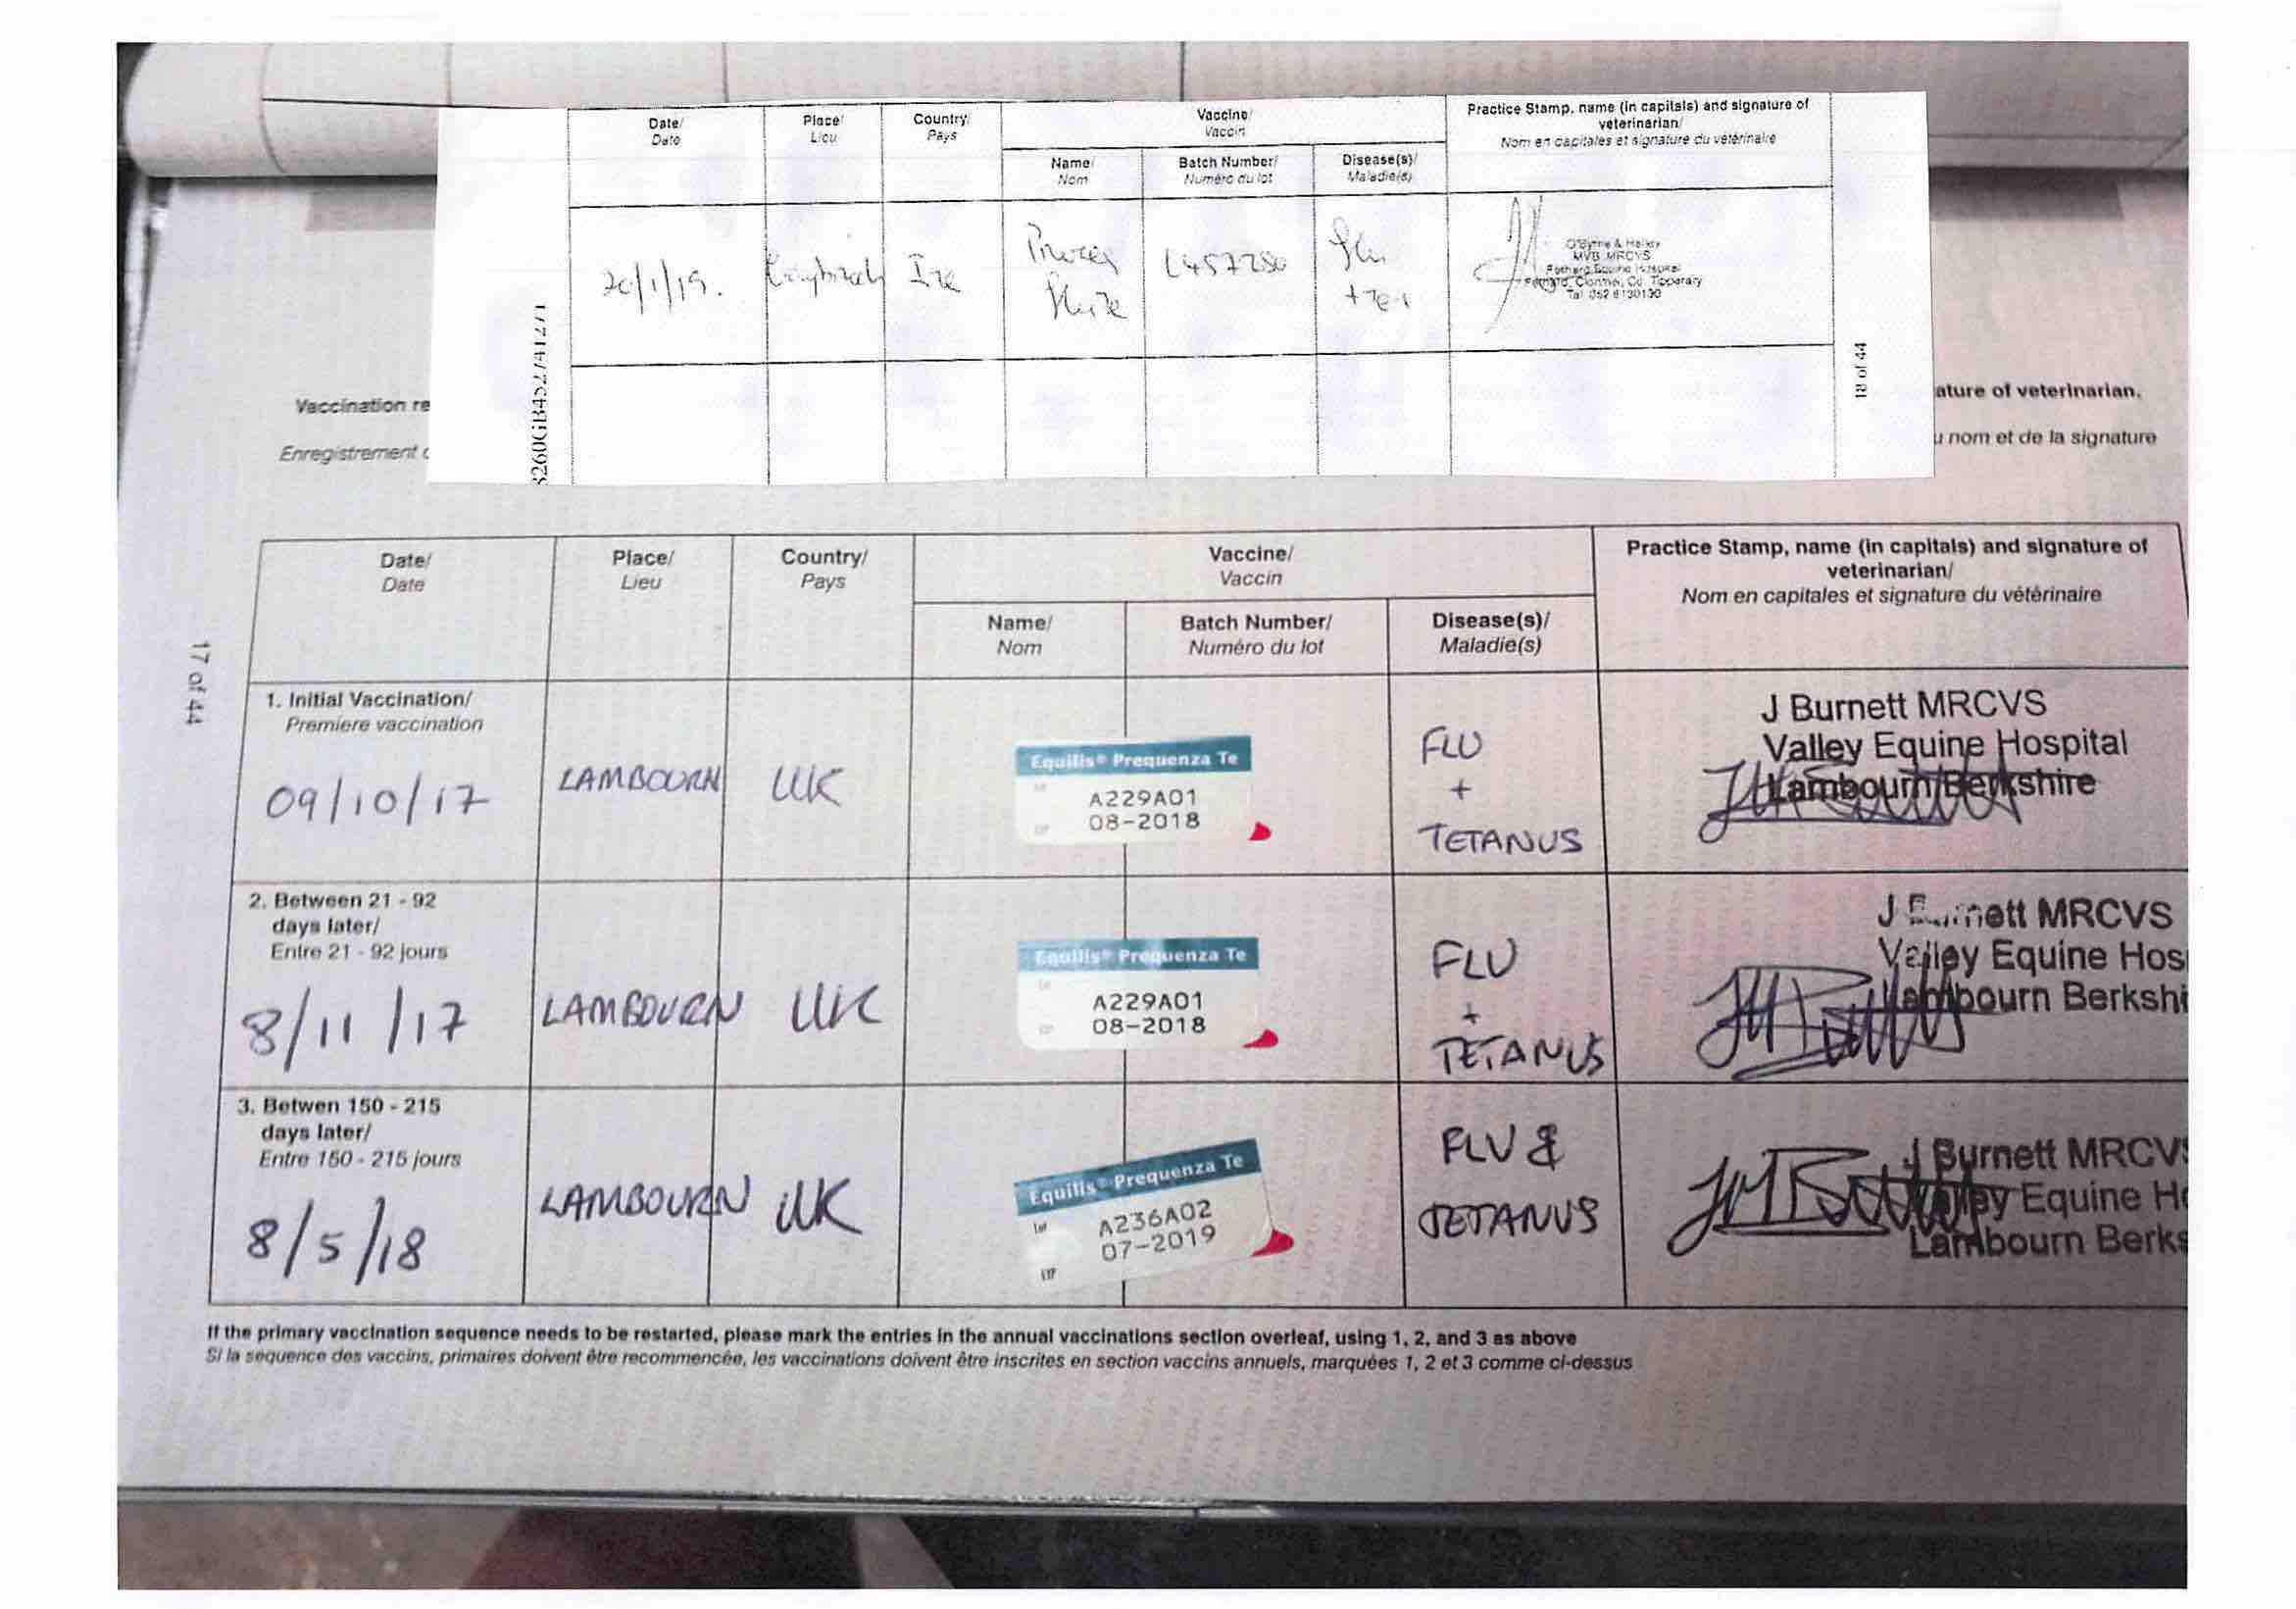 Date/
Date
Place/
Lieu
Country/
Pays
Vaccine/
Vaccin
Practice Stamp, name (in capitals) and signature of
veterinarian/
Nom en capitales et signature du vétérinaire
Name/
Nom
Batch Number/
Numéro du lot
Disease(s)/
Maladie(s)
20/1/19.
Ire
L457280
Flu
+ Tet
O'Byrne & Halley
MVB MRCVS
Equine Hospital
Clonmel, Co. Tipperary
Tel 052 6130130
18 of 44
Vaccination re
ature of veterinarian.
Enregistrement
u nom et de la signature
17 of 44
Date/
Date
Place/
Lieu
Country/
Pays
Vaccine/
Vaccin
Practice Stamp, name (in capitals) and signature of
veterinarian/
Nom en capitales et signature du vétérinaire
Name/
Nom
Batch Number/
Numéro du lot
Disease(s)/
Maladie(s)
1. Initial Vaccination/
Premiere vaccination
09/10/17
LAMBOURN
UK
Equilis® Prequenza Te
A229A01
08-2018
FLU
+
TETANUS
J Burnett MRCVS
Valley Equine Hospital
Lambourn Berkshire
2. Between 21 - 92
days later/
Entre 21 - 92 jours
8/11/17
LAMBOURN
UK
Equilis® Prequenza Te
A229A01
08-2018
FLU
+
TETANUS
J Burnett MRCVS
Valley Equine Hos
Lambourn Berkshi
3. Betwen 150 - 215
days later/
Entre 150 - 215 jours
8/5/18
LAMBOURN
UK
Equilis® Prequenza Te
Lot
A236A02
07-2019
EXP
FLU &
TETANUS
J Burnett MRCVS
Valley Equine Ho
Lambourn Berks
If the primary vaccination sequence needs to be restarted, please mark the entries in the annual vaccinations section overleaf, using 1, 2, and 3 as above
Si la sequence des vaccins, primaires doivent être recommencée, les vaccinations doivent être inscrites en section vaccins annuels, marquées 1, 2 et 3 comme ci-dessus